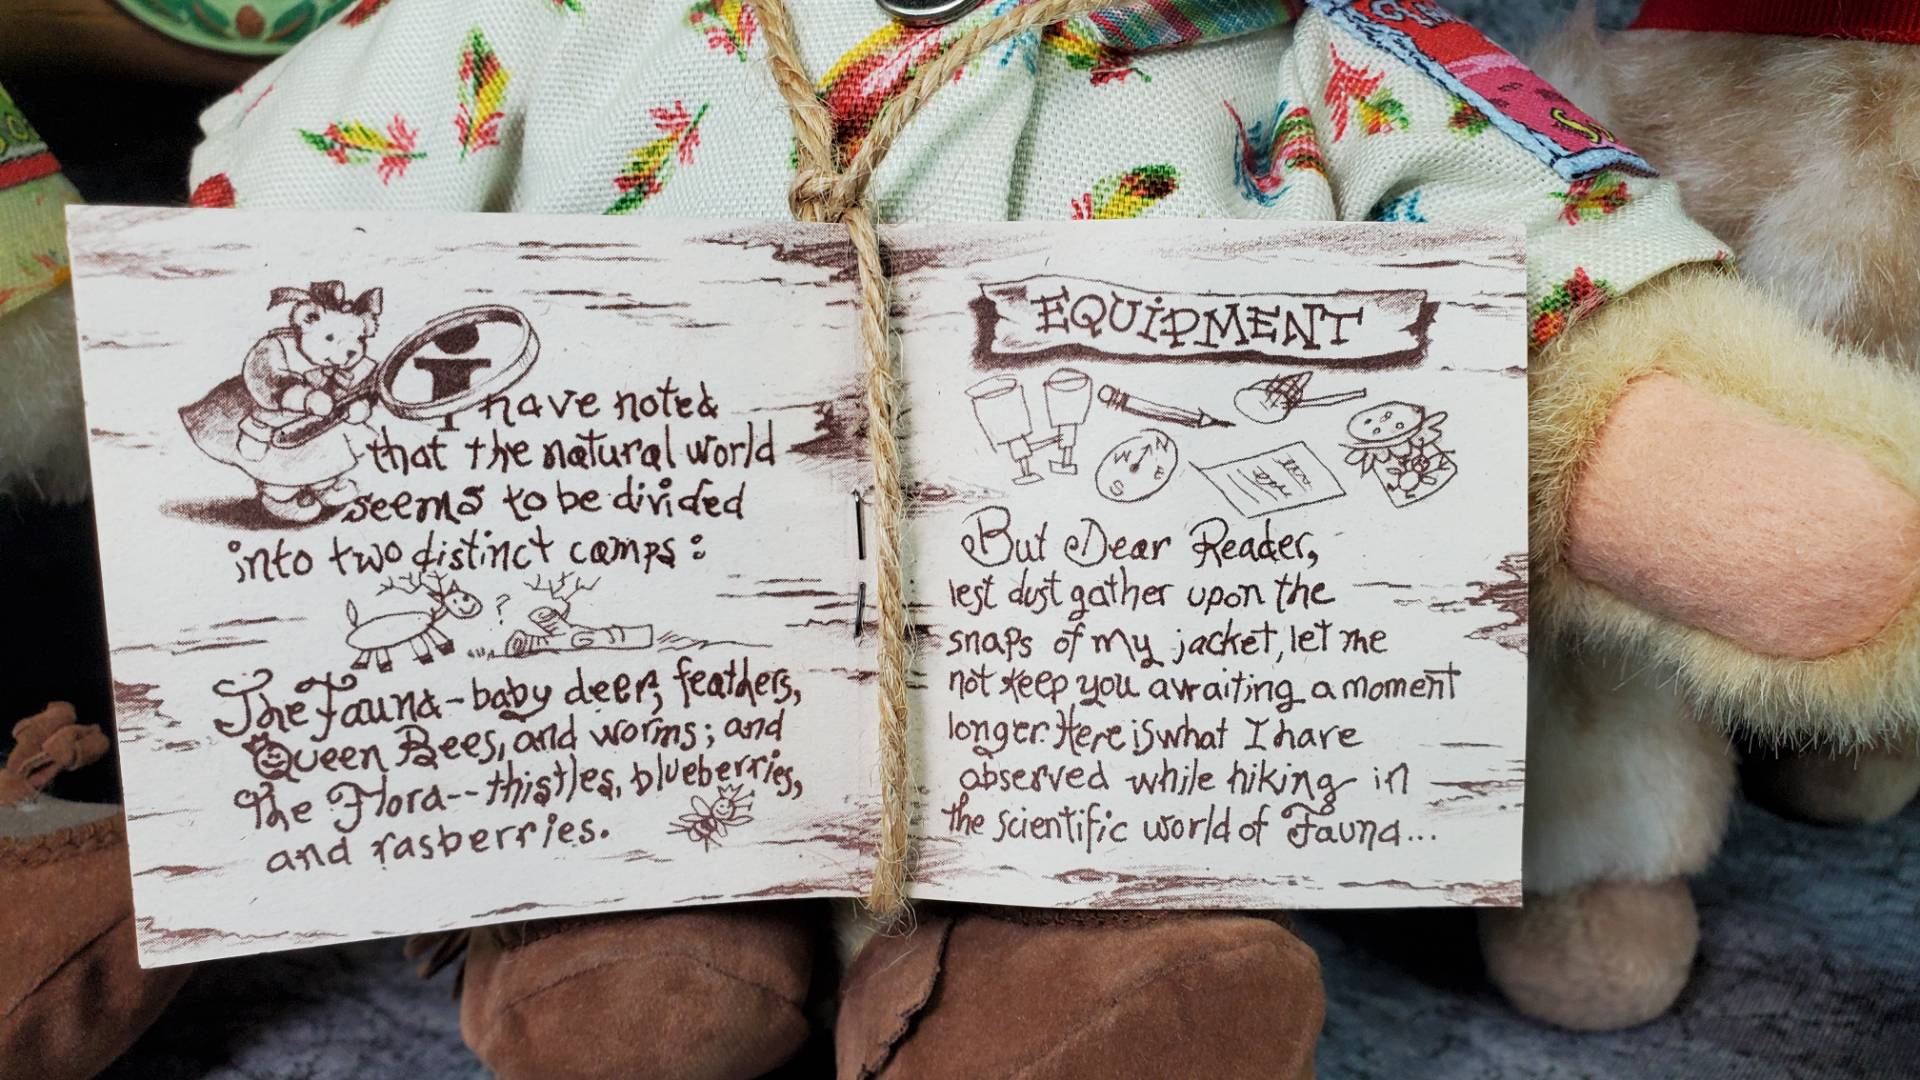 I have noted
that the natural world
seems to be divided
into two distinct camps:
?
The Fauna-baby deer, feathers,
Queen Bees, and worms; and
The Flora--thistles, blueberries,
and rasberries.
EQUIPMENT
N
W E
S
But Dear Reader,
lest dust gather upon the
snaps of my jacket, let me
not keep you awaiting a moment
longer. Here is what I have
observed while hiking in
the scientific world of Fauna...